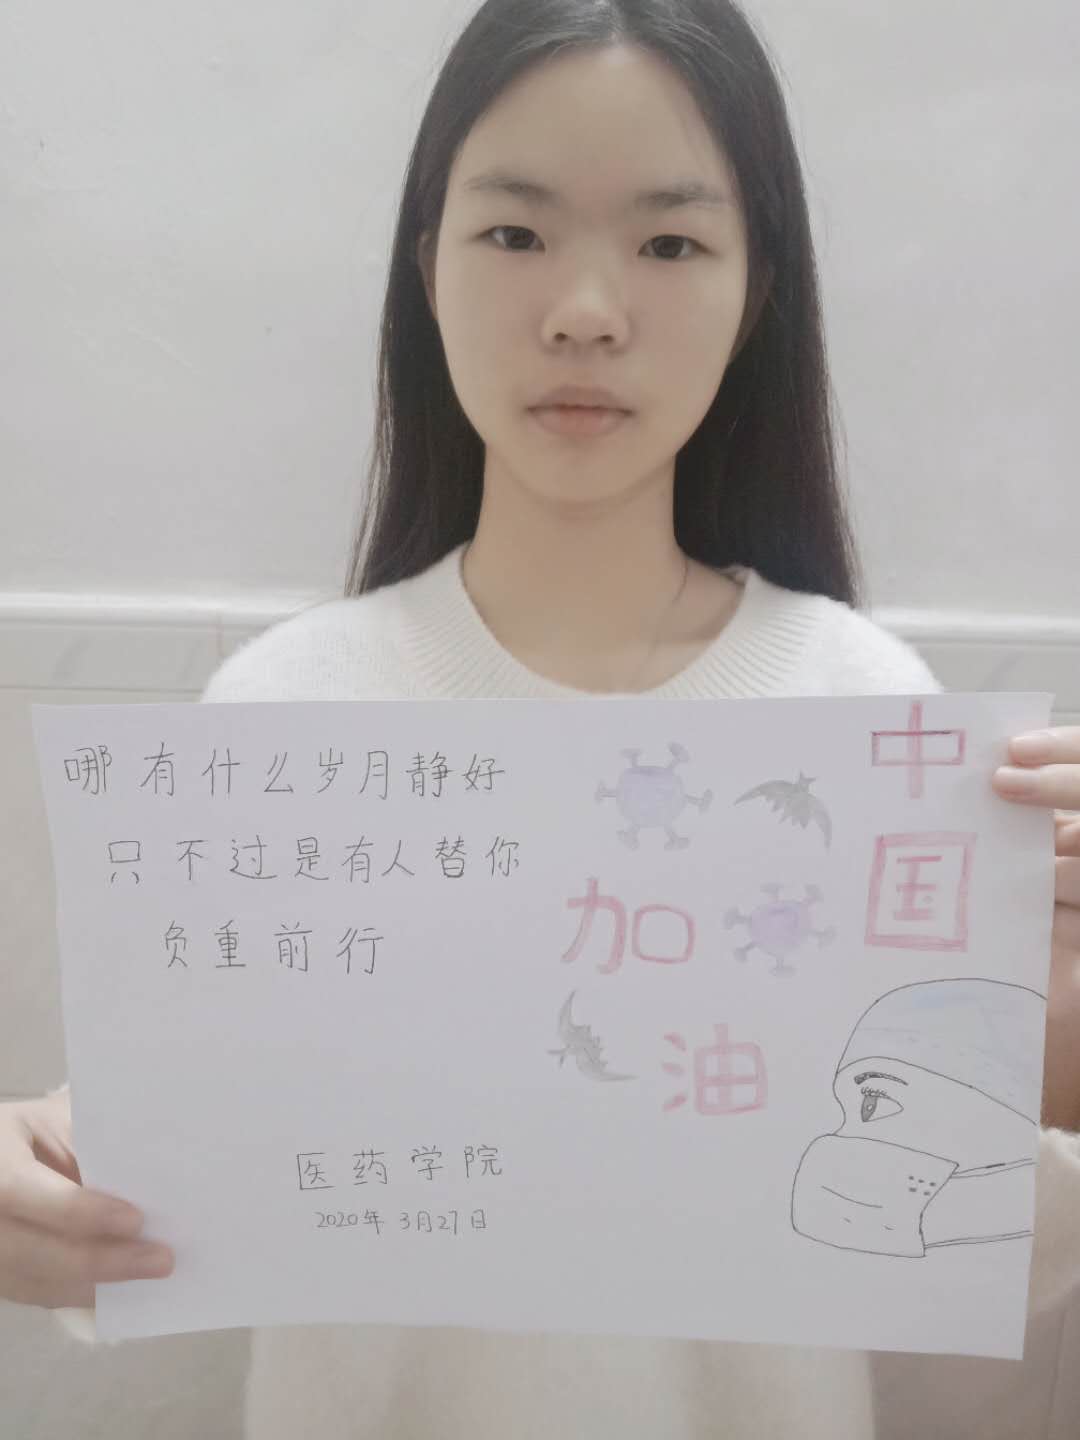 哪有什么岁月静好
只不过是有人替你
负重前行
医药学院
2020年3月27日
中国
加油